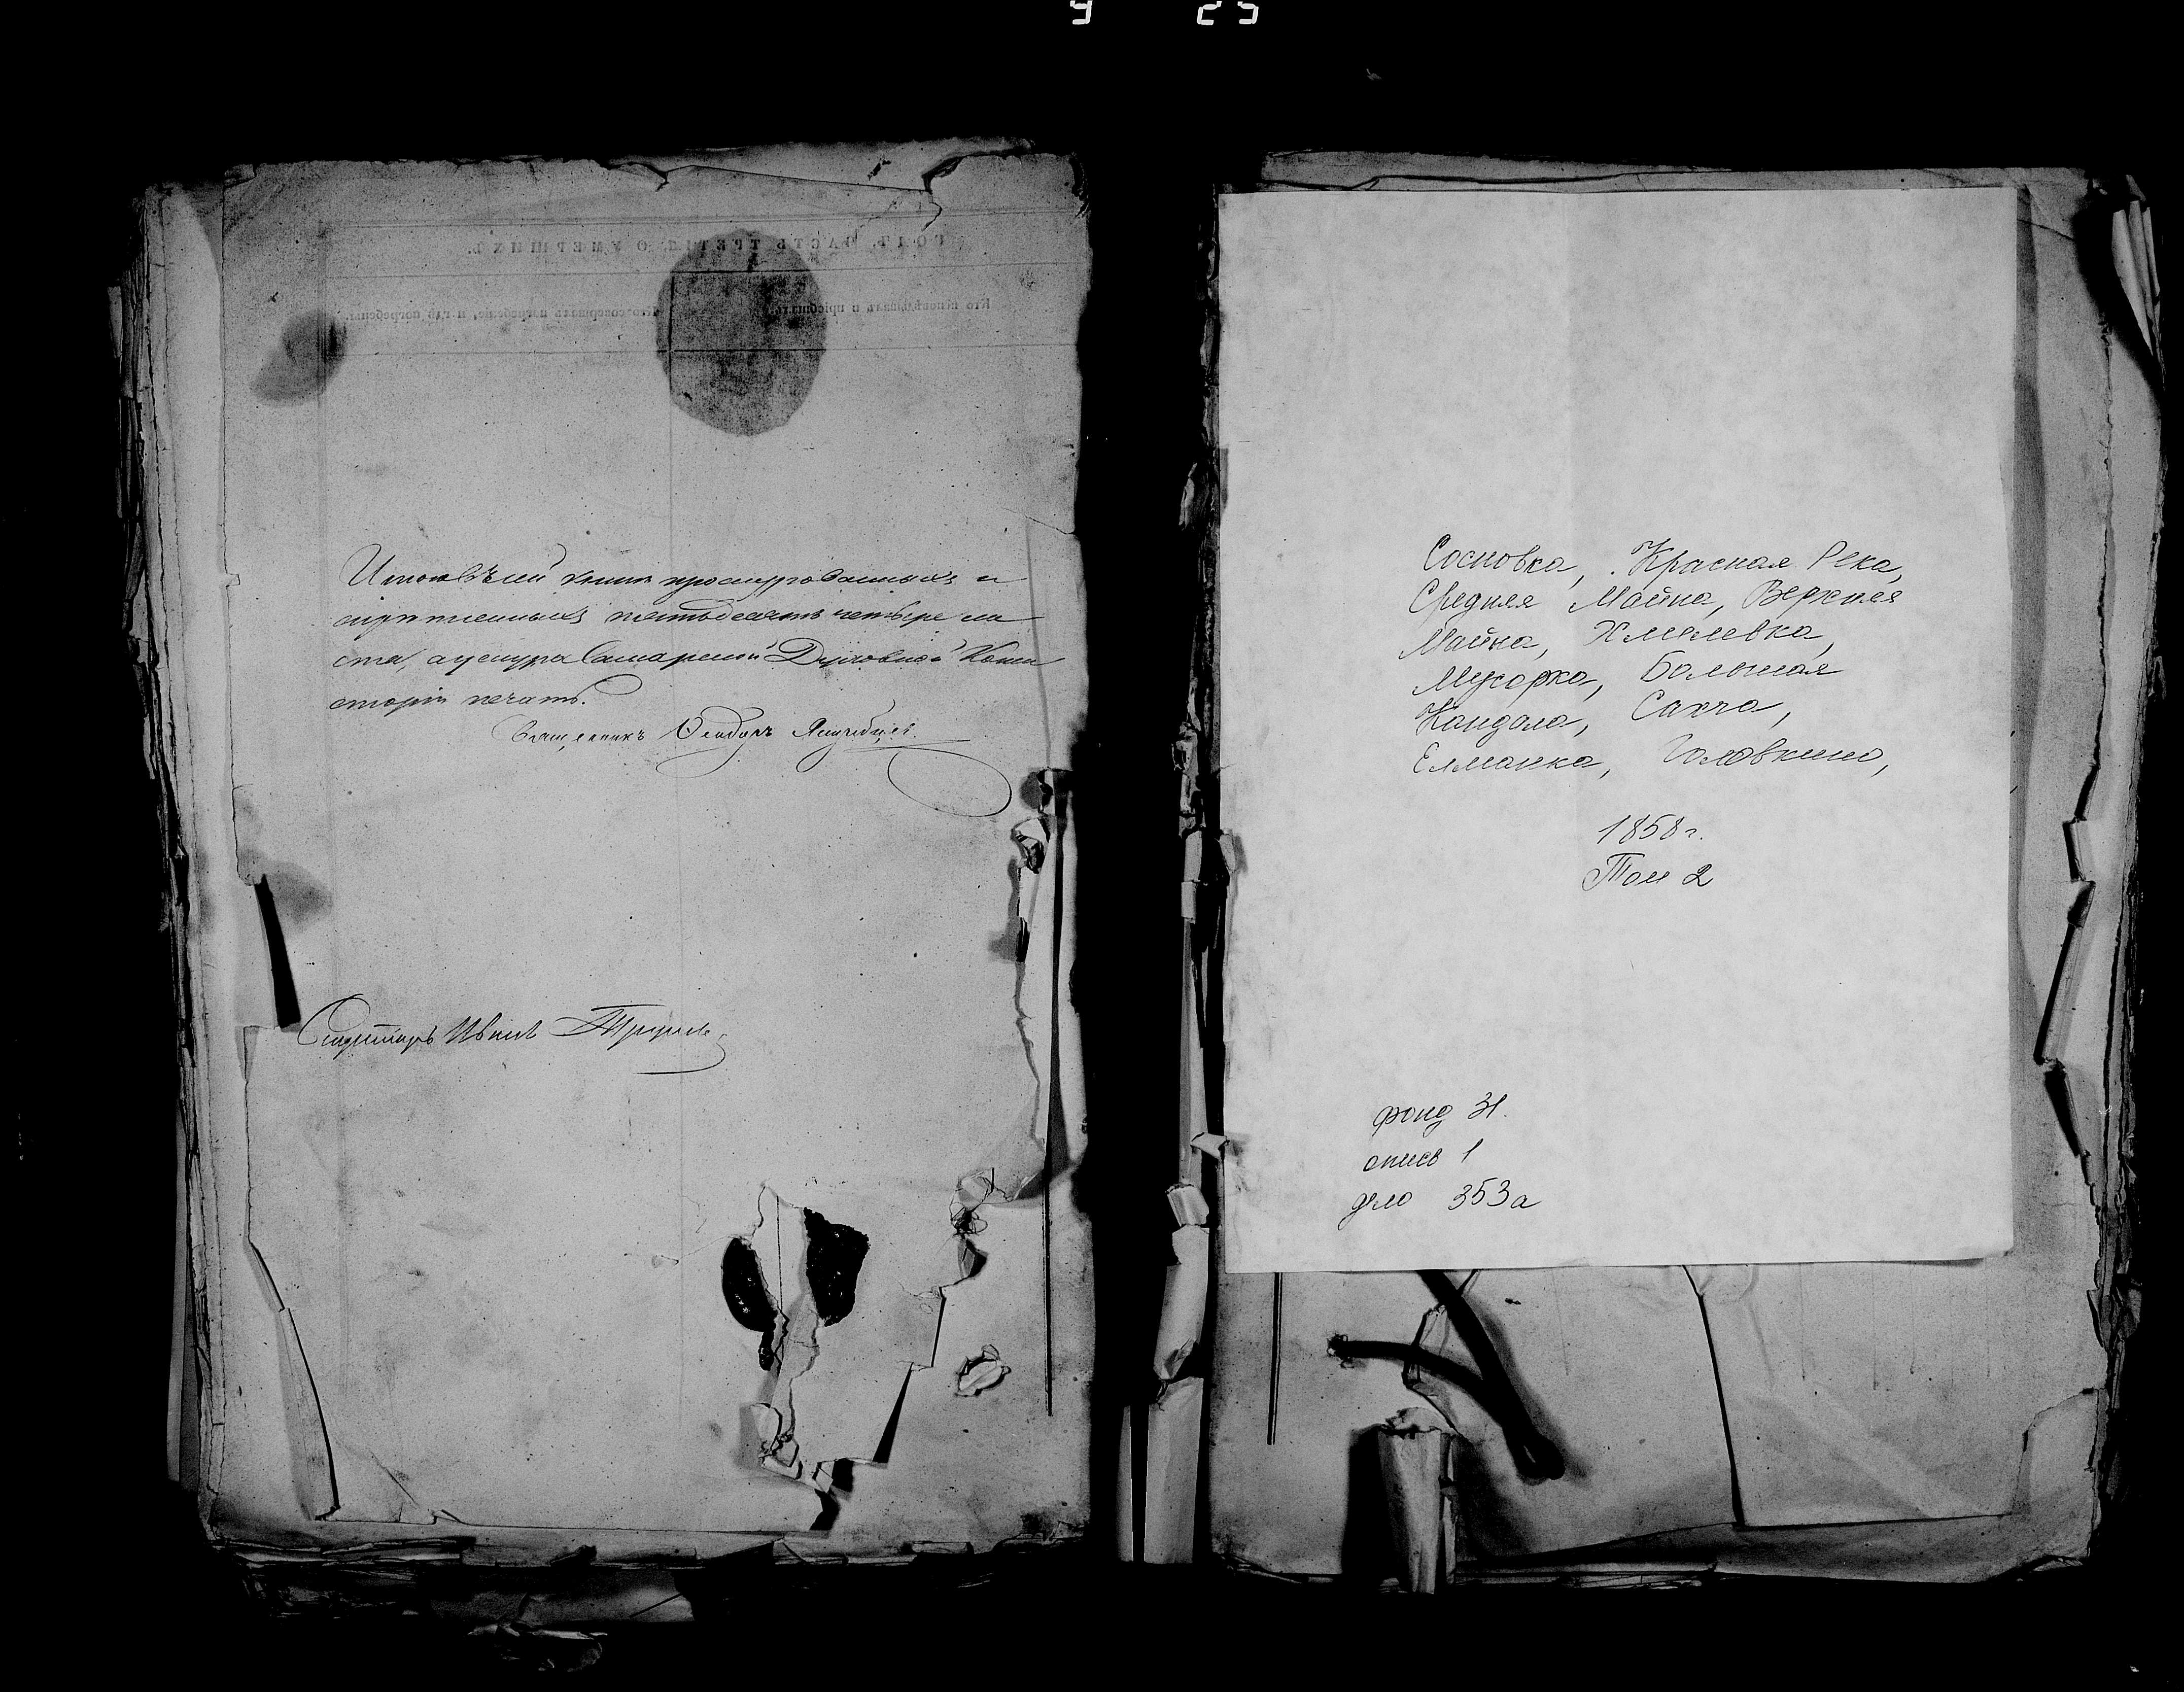 9 25
ГОДЪ, ЧАСТЬ ТРЕТІЯ, О УМЕРШИХЪ.
Кто исповѣдывалъ и пріобщалъ. Кто совершалъ погребеніе, и гдѣ погребены.
книги прошнурованныхъ и
пятьдесятъ четыре ли
ста, а у снура Самарской Духовной Конси
сторіи печать.
Священникъ Ѳеодоръ
Секретарь Иванъ
Сосновка, Красная Река,
Средняя Майна, Верхняя
Майна, Хмелевка,
Мусорка, Большая
Кандала, Сахча,
Елманка, Головкино,
1858 г.
Том 2
фонд 31.
опись 1
дело 353а